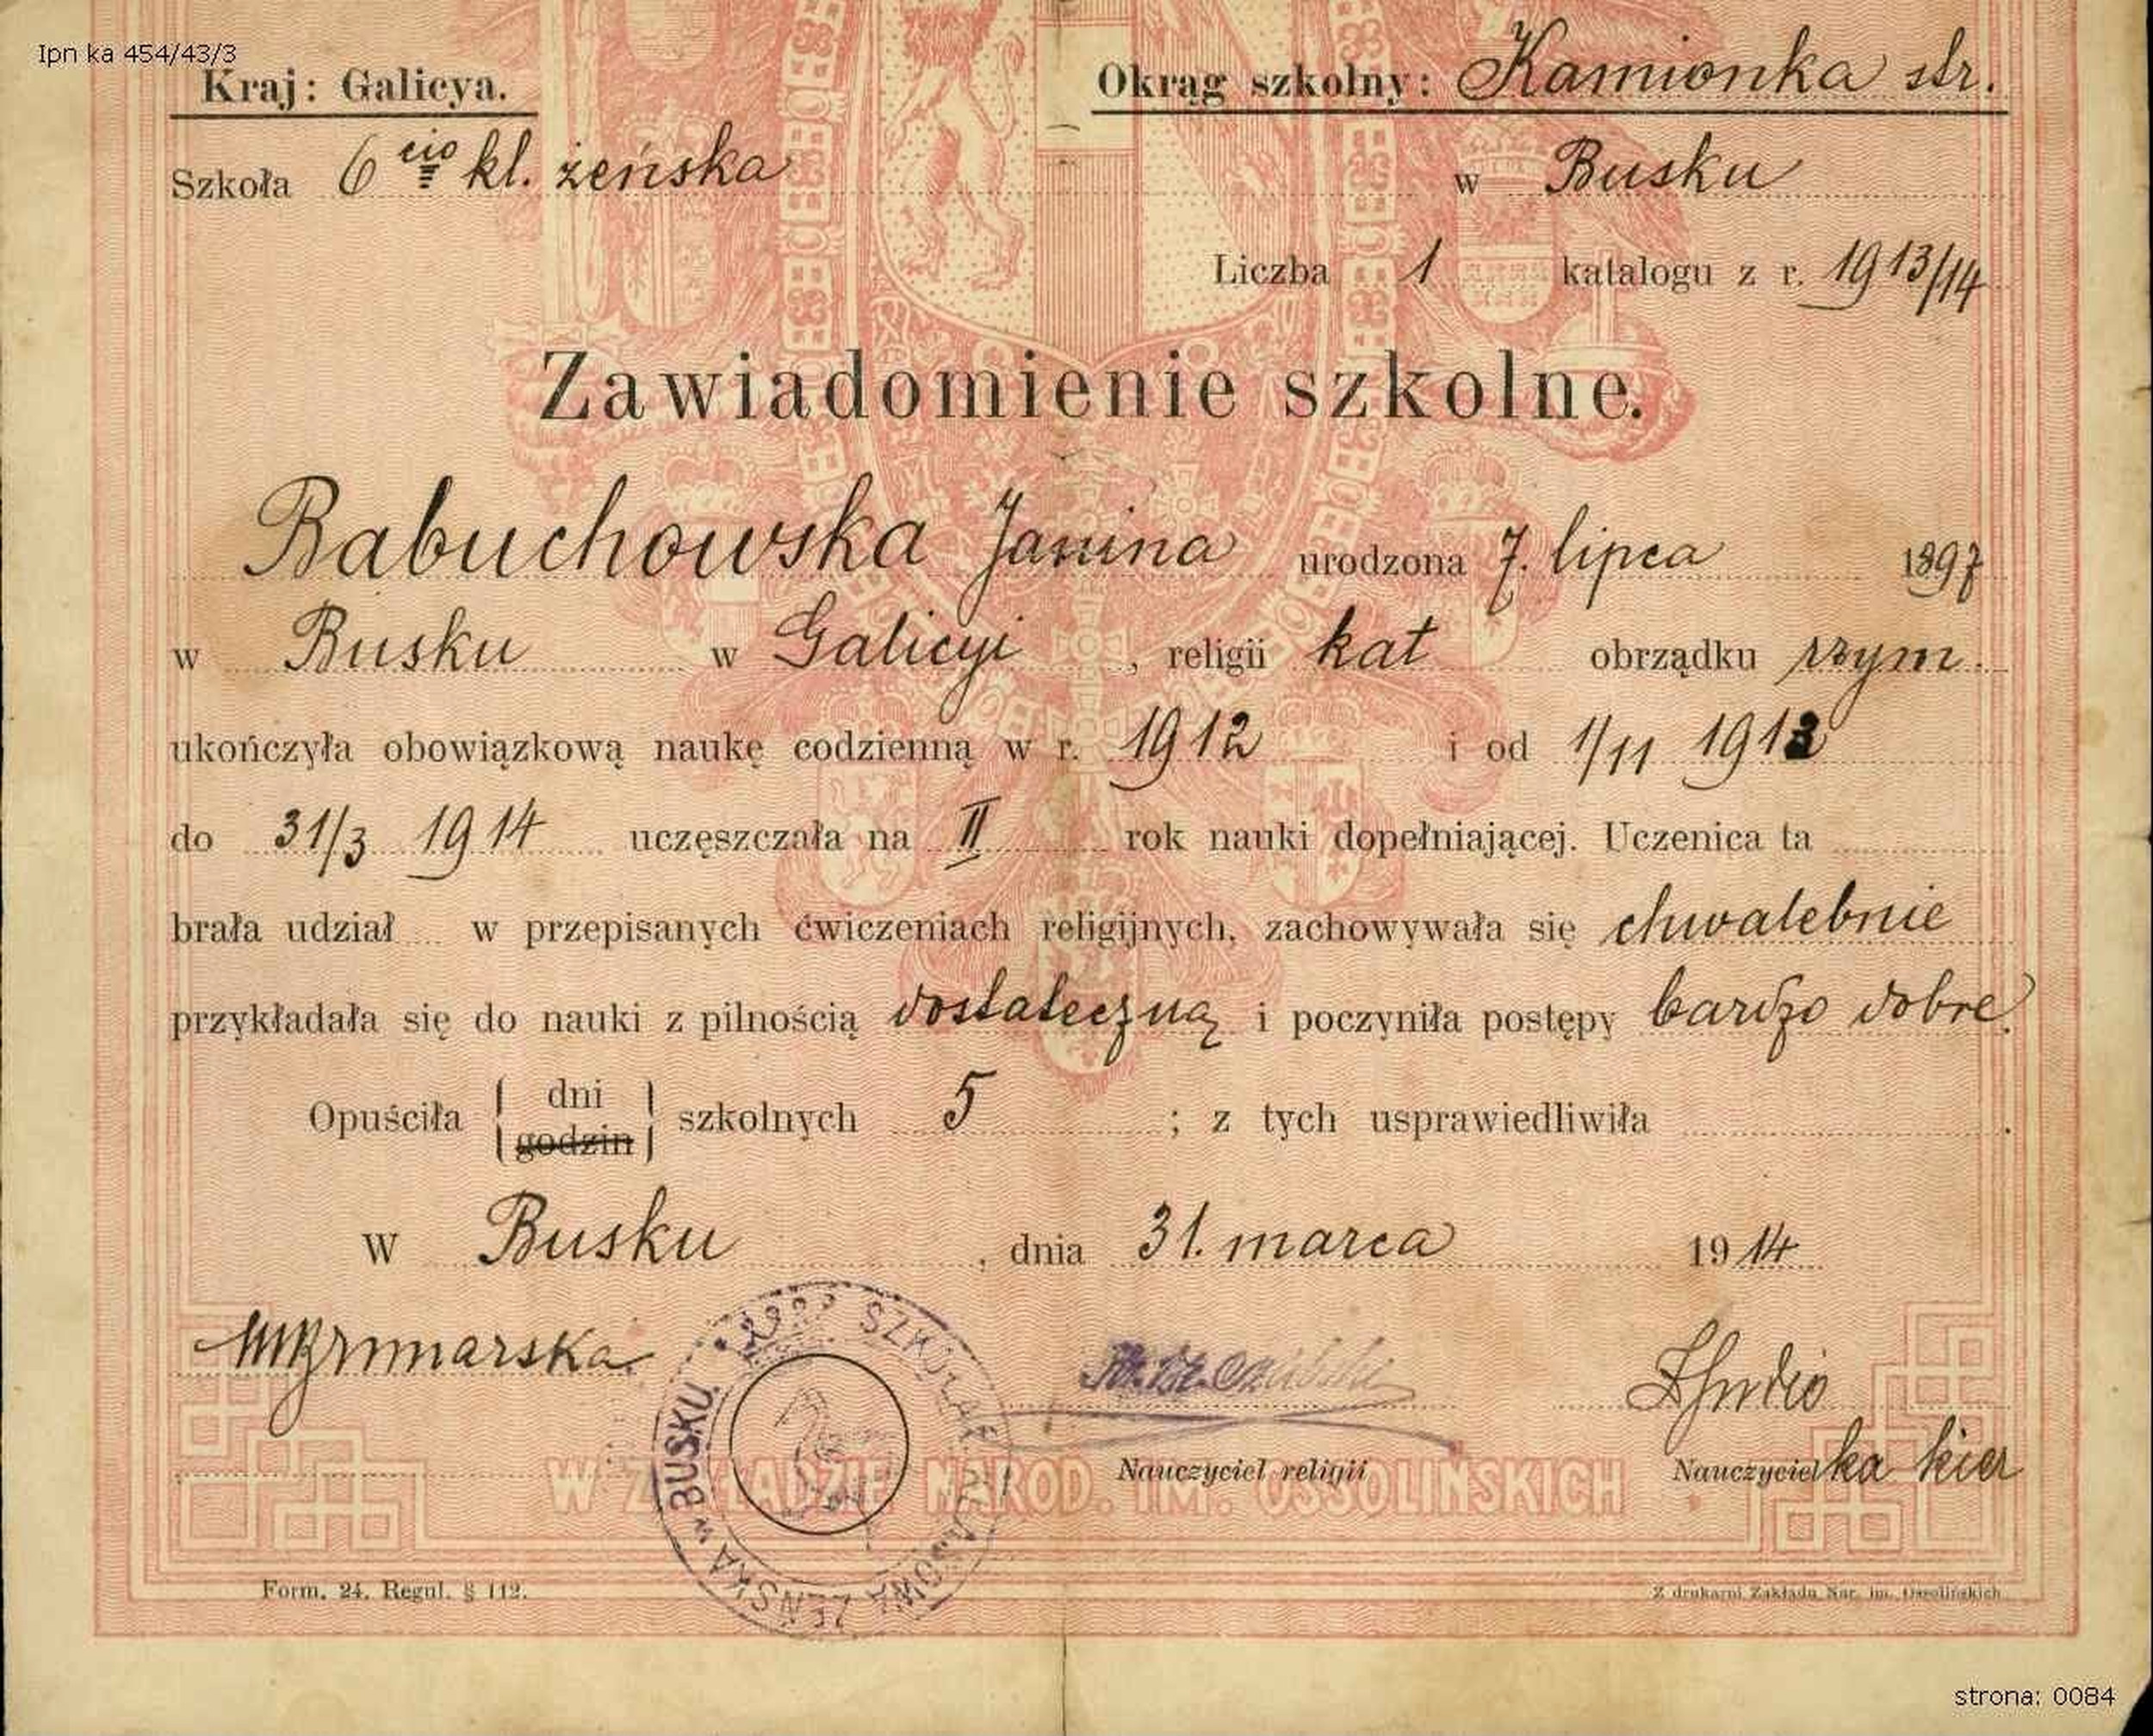 Ipn ka 454/43/3
Kraj: Galicya. Okrąg szkolny: Kamionka str.
Szkoła 6cio kl. żeńska w Busku
Liczba 1 katalogu z r. 1913/14
Zawiadomienie szkolne.
Babuchowska Janina urodzona 7. lipca 1897
w Busku w Galicyi, religii kat obrządku rzym.
ukończyła obowiązkową naukę codzienną w r. 1912 i od 1/11 1913
do 31/3 1914 uczęszczała na II rok nauki dopełniającej. Uczenica ta
brała udział w przepisanych ćwiczeniach religijnych, zachowywała się chwalebnie
przykładała się do nauki z pilnością dostateczną i poczyniła postępy bardzo dobre.
Opuściła { dni godzin } szkolnych 5 ; z tych usprawiedliwiła .
W Busku, dnia 31. marca 1914
SZKOŁA 6 KLASOWA ŻEŃSKA w BUSKU
Nauczyciel religii Nauczycielka kier
W ZAKŁADZIE NAROD. IM. OSSOLIŃSKICH
Form. 24. Regul. § 112. Z drukarni Zakładu Nar. im. Ossolińskich
strona: 0084